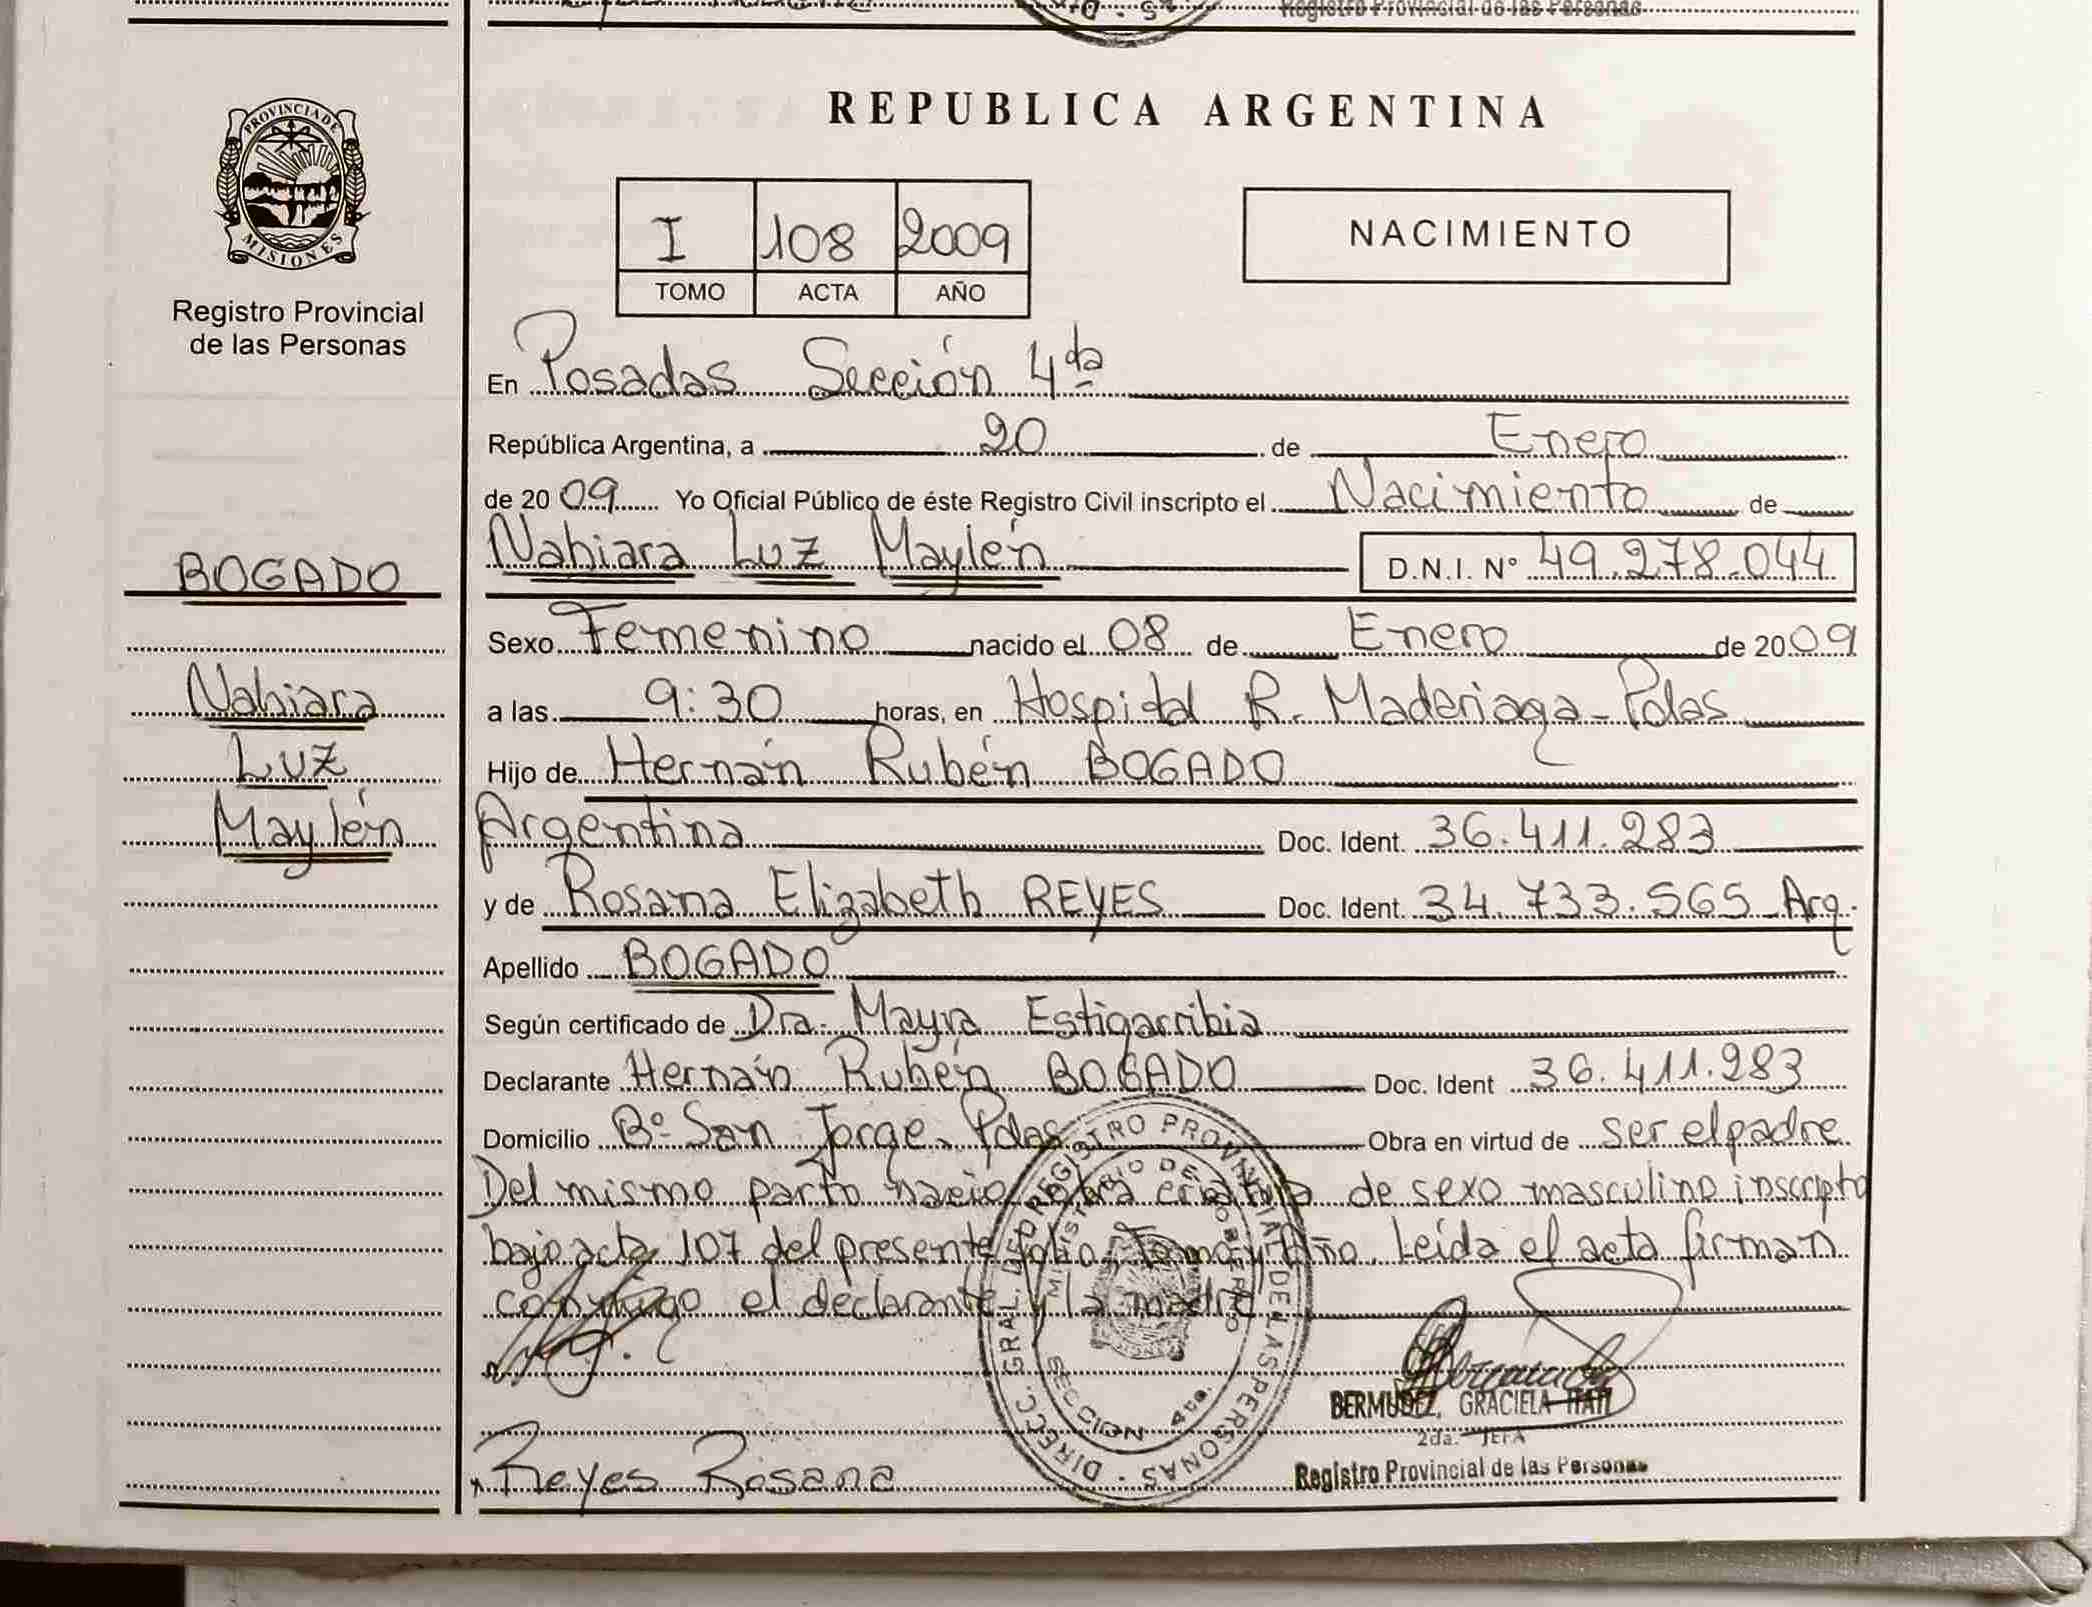 Registro Provincial de las Personas
PROVINCIA DE
MISIONES
Registro Provincial
de las Personas
BOGADO
Nahiara
Luz
Maylén
REPUBLICA ARGENTINA
I 108 2009
TOMO ACTA AÑO
NACIMIENTO
En Posadas Sección 4ta
República Argentina, a 20 de Enero
de 2009 Yo Oficial Público de éste Registro Civil inscripto el Nacimiento de
Nahiara Luz Maylén D.N.I. N° 49.278.044
Sexo Femenino nacido el 08 de Enero de 2009
a las 9:30 horas, en Hospital R. Madariaga - Pdas
Hijo de Hernán Rubén BOGADO
Argentina Doc. Ident. 36.411.283
y de Rosana Elizabeth REYES Doc. Ident. 34.733.565 Arg.
Apellido BOGADO
Según certificado de Dra. Mayra Estigarribia
Declarante Hernán Rubén BOGADO Doc. Ident 36.411.283
Domicilio B° San Jorge. Pdas Obra en virtud de ser el padre
Del mismo parto nació otra criatura de sexo masculino inscripto
bajo acta 107 del presente folio, Tomo y Año. Leída el acta firman
conmigo el declarante y la madre
DIRECC. GRAL. DEL REGISTRO PROVINCIAL DE LAS PERSONAS
MINISTERIO DE GOBIERNO
SECCION 4ta.
BERMUDEZ, GRACIELA ITATI
2da. JEFA
Registro Provincial de las Personas
Reyes Rosana